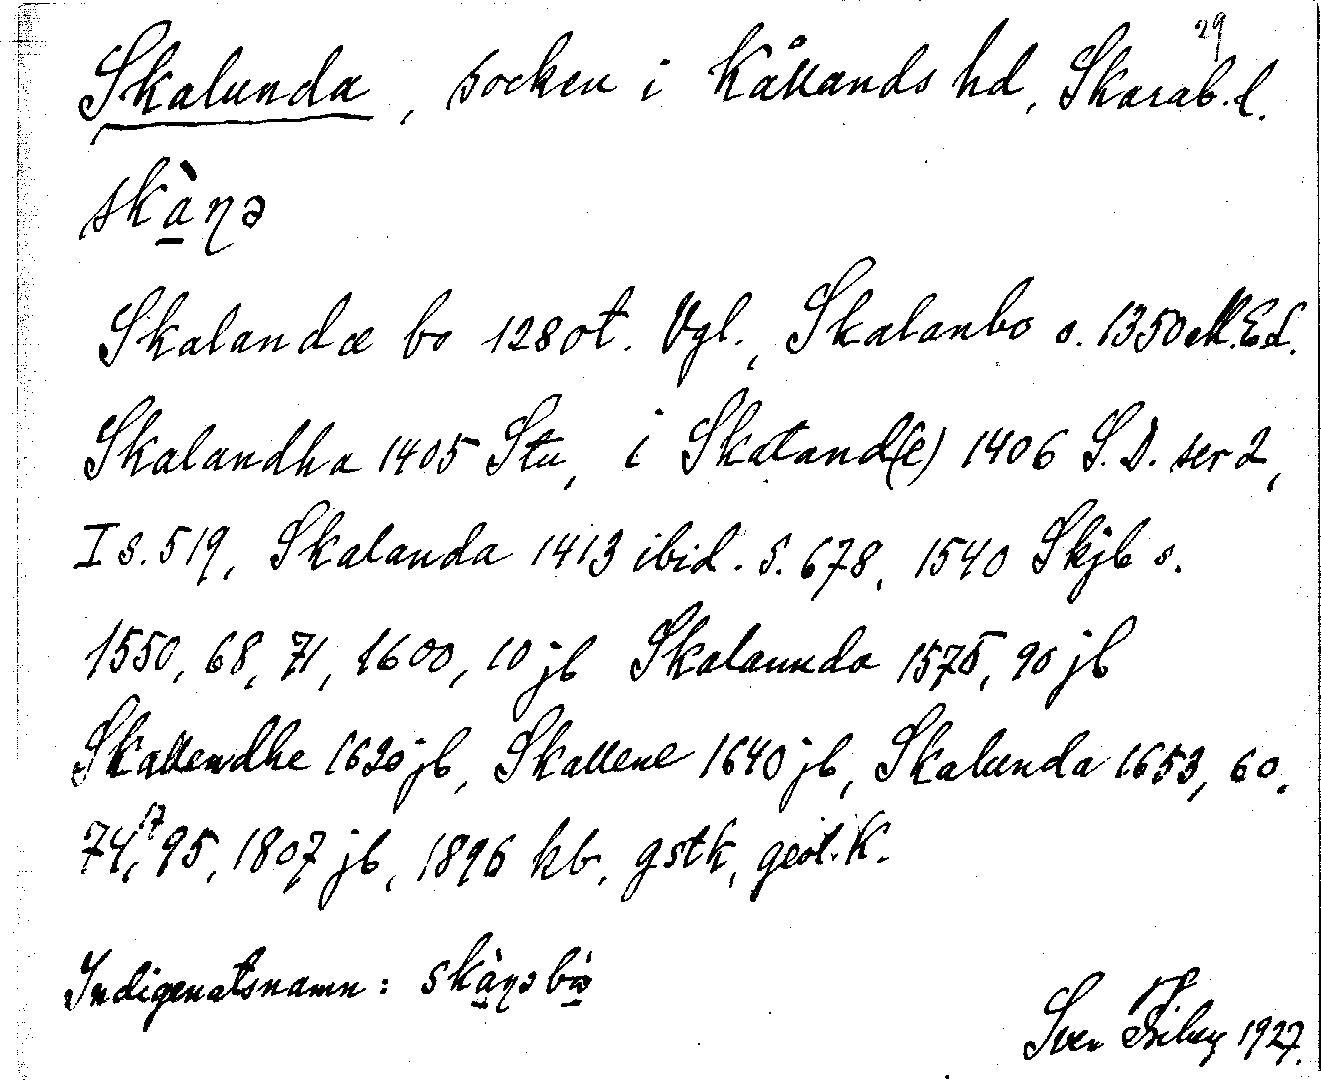 29
Skalunda, socken i Kållands hd, Skarab. l.
skàṉə
Skalandæ bo 1280t. Vgl., Skalanbo o. 1350 M.E.L.
Skalandha 1405 Stu, i Skaland(e) 1406 S.D. ser 2,
I s. 519, Skalanda 1413 ibid. s. 678, 1540 Skjb s.
1550, 68, 71, 1600, 10 jb Skalannda 1575, 90 jb
Skallendhe 1630 jb, Skallene 1640 jb, Skalunda 1653, 60,
74, 17 95, 1807 jb, 1896 kb, gstk, geol. K.
Indigenatsnamn:
Sven 1927.